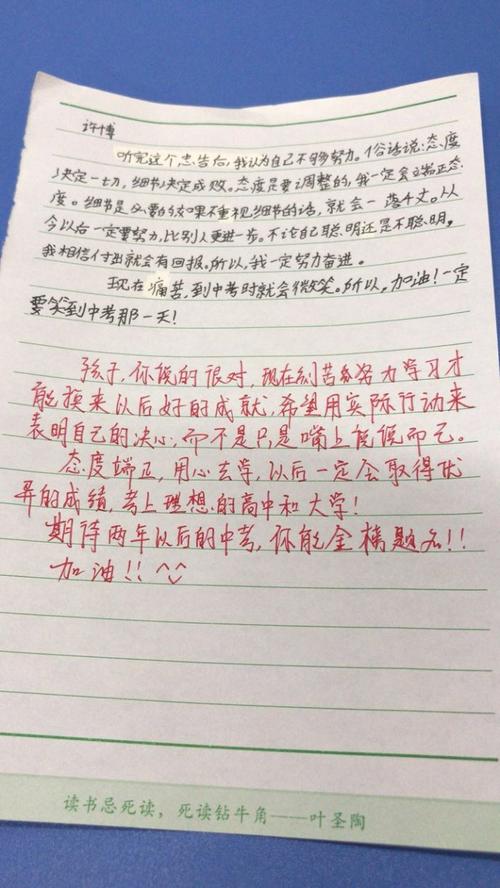 许博
听完这个忠告后，我认为自己不够努力。俗话说：态度
决定一切，细节决定成败。态度是要调整的，我一定会端正态
度。细节是必要的，如果不重视细节的话，就会一落千丈。从
今以后一定要努力，比别人更进一步。不论自己聪明还是不聪明，
我相信付出就会有回报。所以，我一定努力奋进。
现在痛苦，到中考时就会微笑。所以，加油！一定
要笑到中考那一天！
孩子，你说的很对，现在刻苦努力学习才
能换来以后好的成就，希望用实际行动来
表明自己的决心，而不是只是嘴上说说而已。
态度端正，用心去学，以后一定会取得优
异的成绩，考上理想的高中和大学！
期待两年以后的中考，你能金榜题名！！
加油！！^^
读书忌死读，死读钻牛角——叶圣陶